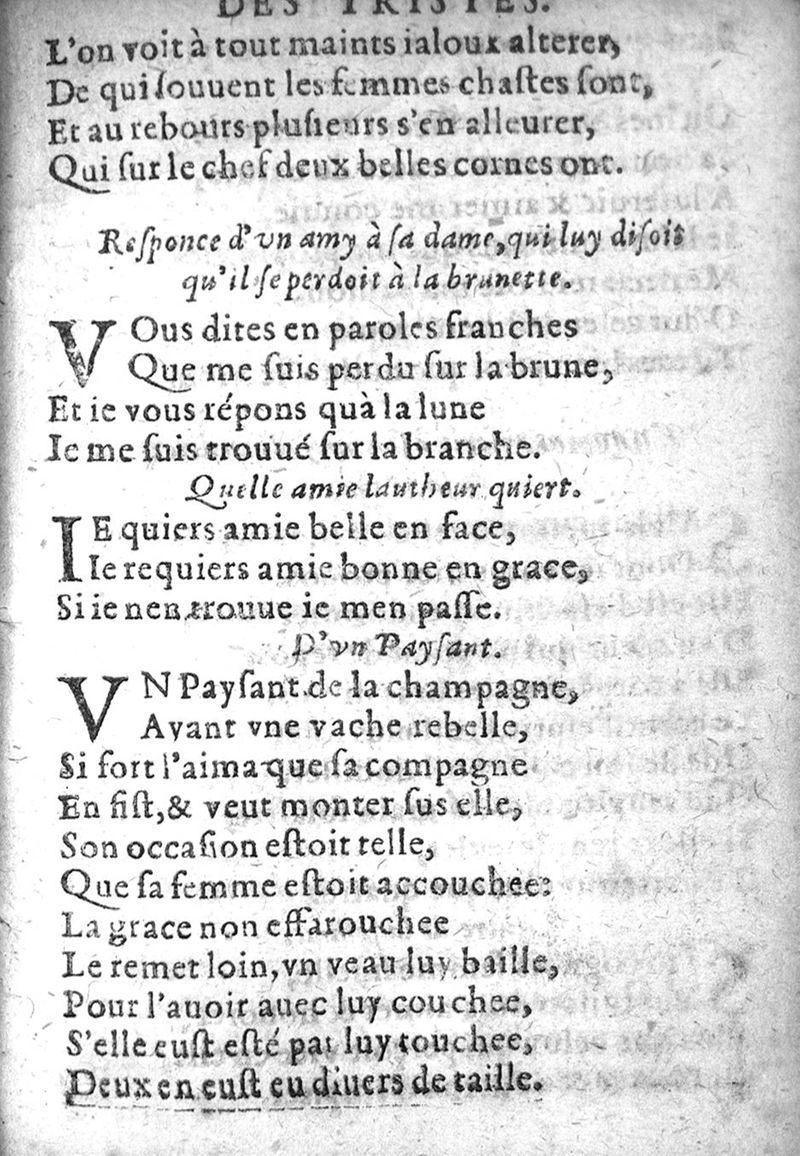 DES TRISTES.
L'on voit à tout maints ialoux alterer,
De qui ſouuent les femmes chaſtes ſont,
Et au rebours pluſieurs s'en alleurer,
Qui ſur le chef deux belles cornes ont.
Reſponce d'vn amy à ſa dame, qui luy diſoit
qu'il ſe perdoit à la brunette.
VOus dites en paroles franches
Que me ſuis perdu ſur la brune,
Et ie vous répons quà la lune
Ie me ſuis trouué ſur la branche.
Quelle amie lautheur quiert.
IE quiers amie belle en face,
Ie requiers amie bonne en grace,
Si ie nen trouue ie men paſſe.
D'vn Payſant.
VN Payſant de la champagne,
Ayant vne vache rebelle,
Si fort l'aima que ſa compagne
En fiſt, & veut monter ſus elle,
Son occaſion eſtoit telle,
Que ſa femme eſtoit accouchee:
La grace non effarouchee
Le remet loin, vn veau luy baille,
Pour l'auoir auec luy couchee,
S'elle euſt eſté par luy touchee,
Deux en euſt eu diuers de taille.